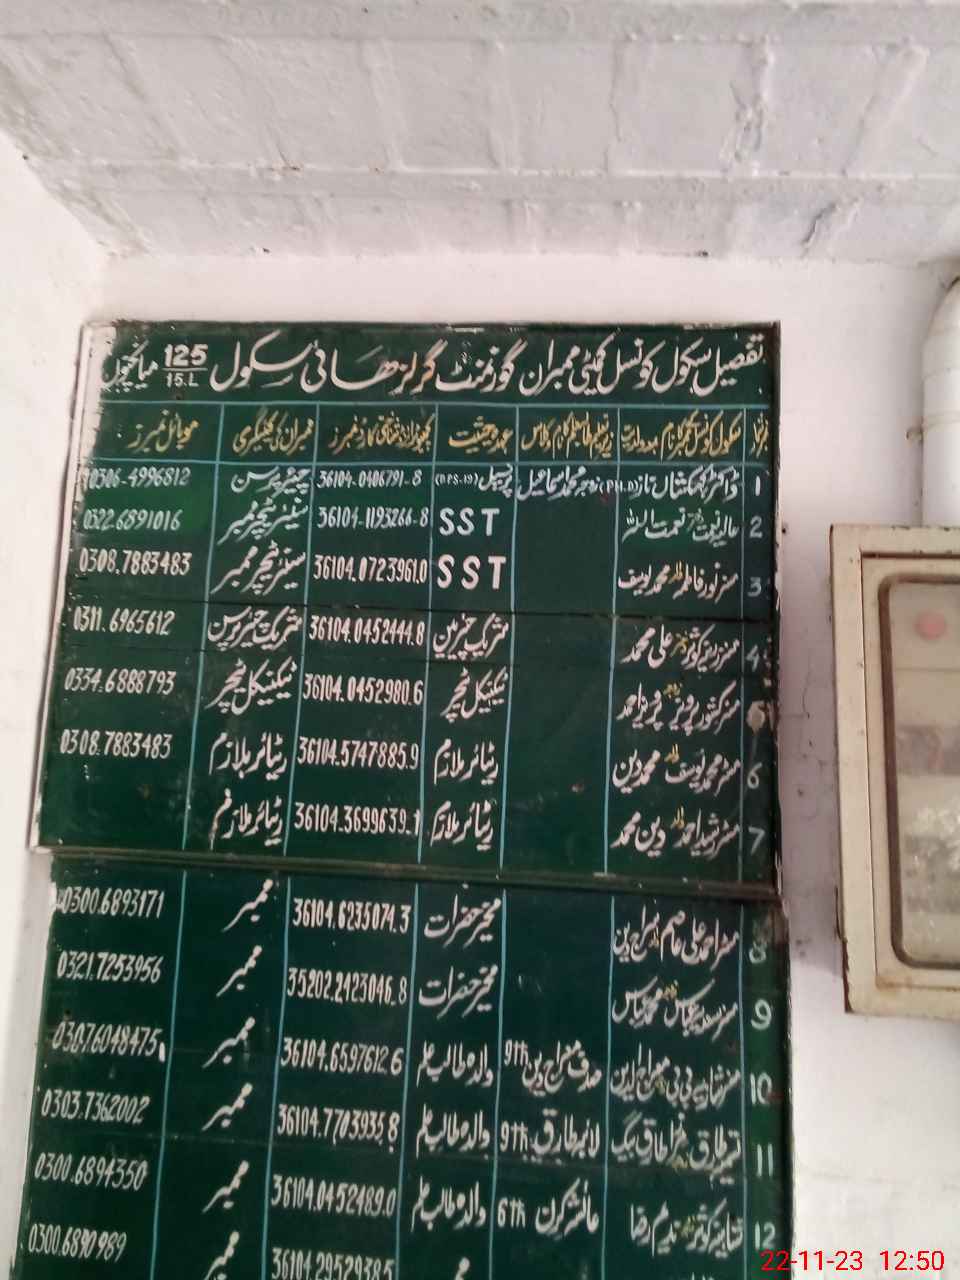 تفصیل سکول کونسل کمیٹی ممبران گورنمنٹ گرلز ھائی سکول 125/15.L میانچنوں
نمبر شمار سکول کونسل ممبر کا نام بمعہ ولدیت زیر تعلیم طالبعلم کا نام کلاس عہدہ حیثیت کمپیوٹرائزڈ شناختی کارڈ نمبرز ممبران کی کیٹیگری موبائل نمبرز
1 ڈاکٹر کہکشاں ناز (PH.D) زوجہ محمد اسماعیل پرنسپل (BPS-19) 36104.0406791-8 چیئرپرسن 0306-4996812
2 عالیہ نعمت نعمت اللہ SST 36104-1193266-8 سینئر ٹیچر ممبر 0322.6891016
3 مسز نور فاطمہ محمد یوسف SST 36104.0723961.0 سینئر ٹیچر ممبر 0308.7883483
4 علی محمد شریک چیئرمین 36104.0452444.8 شریک چیئرپرسن 0311.6965612
مسز کشور پرویز پرویز احمد ٹیکنیکل ٹیچر 36104.0452980.6 ٹیکنیکل ٹیچر 0334.6888793
6 مسٹر محمد یوسف محمد دین ریٹائر ملازم 36104.5747885.9 ریٹائر ملازم 0308.7883483
7 مسٹر رشید احمد دین محمد ریٹائر ملازم 36104.3699639.1 ریٹائر ملازم
8 مسٹر احمد علی عاصم سراج دین مخیر حضرات 36104.6235074.3 ممبر 0300.6893171
9 محمد عباس مخیر حضرات 35202.2423046.8 ممبر 0321.7253956
10 معراج الدین صدف معراج دین 9th والدہ طالب علم 36104.6597612.6 ممبر 0307.6048475
11 طارق بیگ لائبہ طارق 9th والدہ طالب علم 36104.7703935.8 ممبر 0303.7362002
12 ندیم رضا عائشہ کرن 6th والدہ طالب علم 36104.0452489.0 ممبر 0300.6894350
36104.2952938.5 ممبر 0300.6890989
22-11-23 12:50